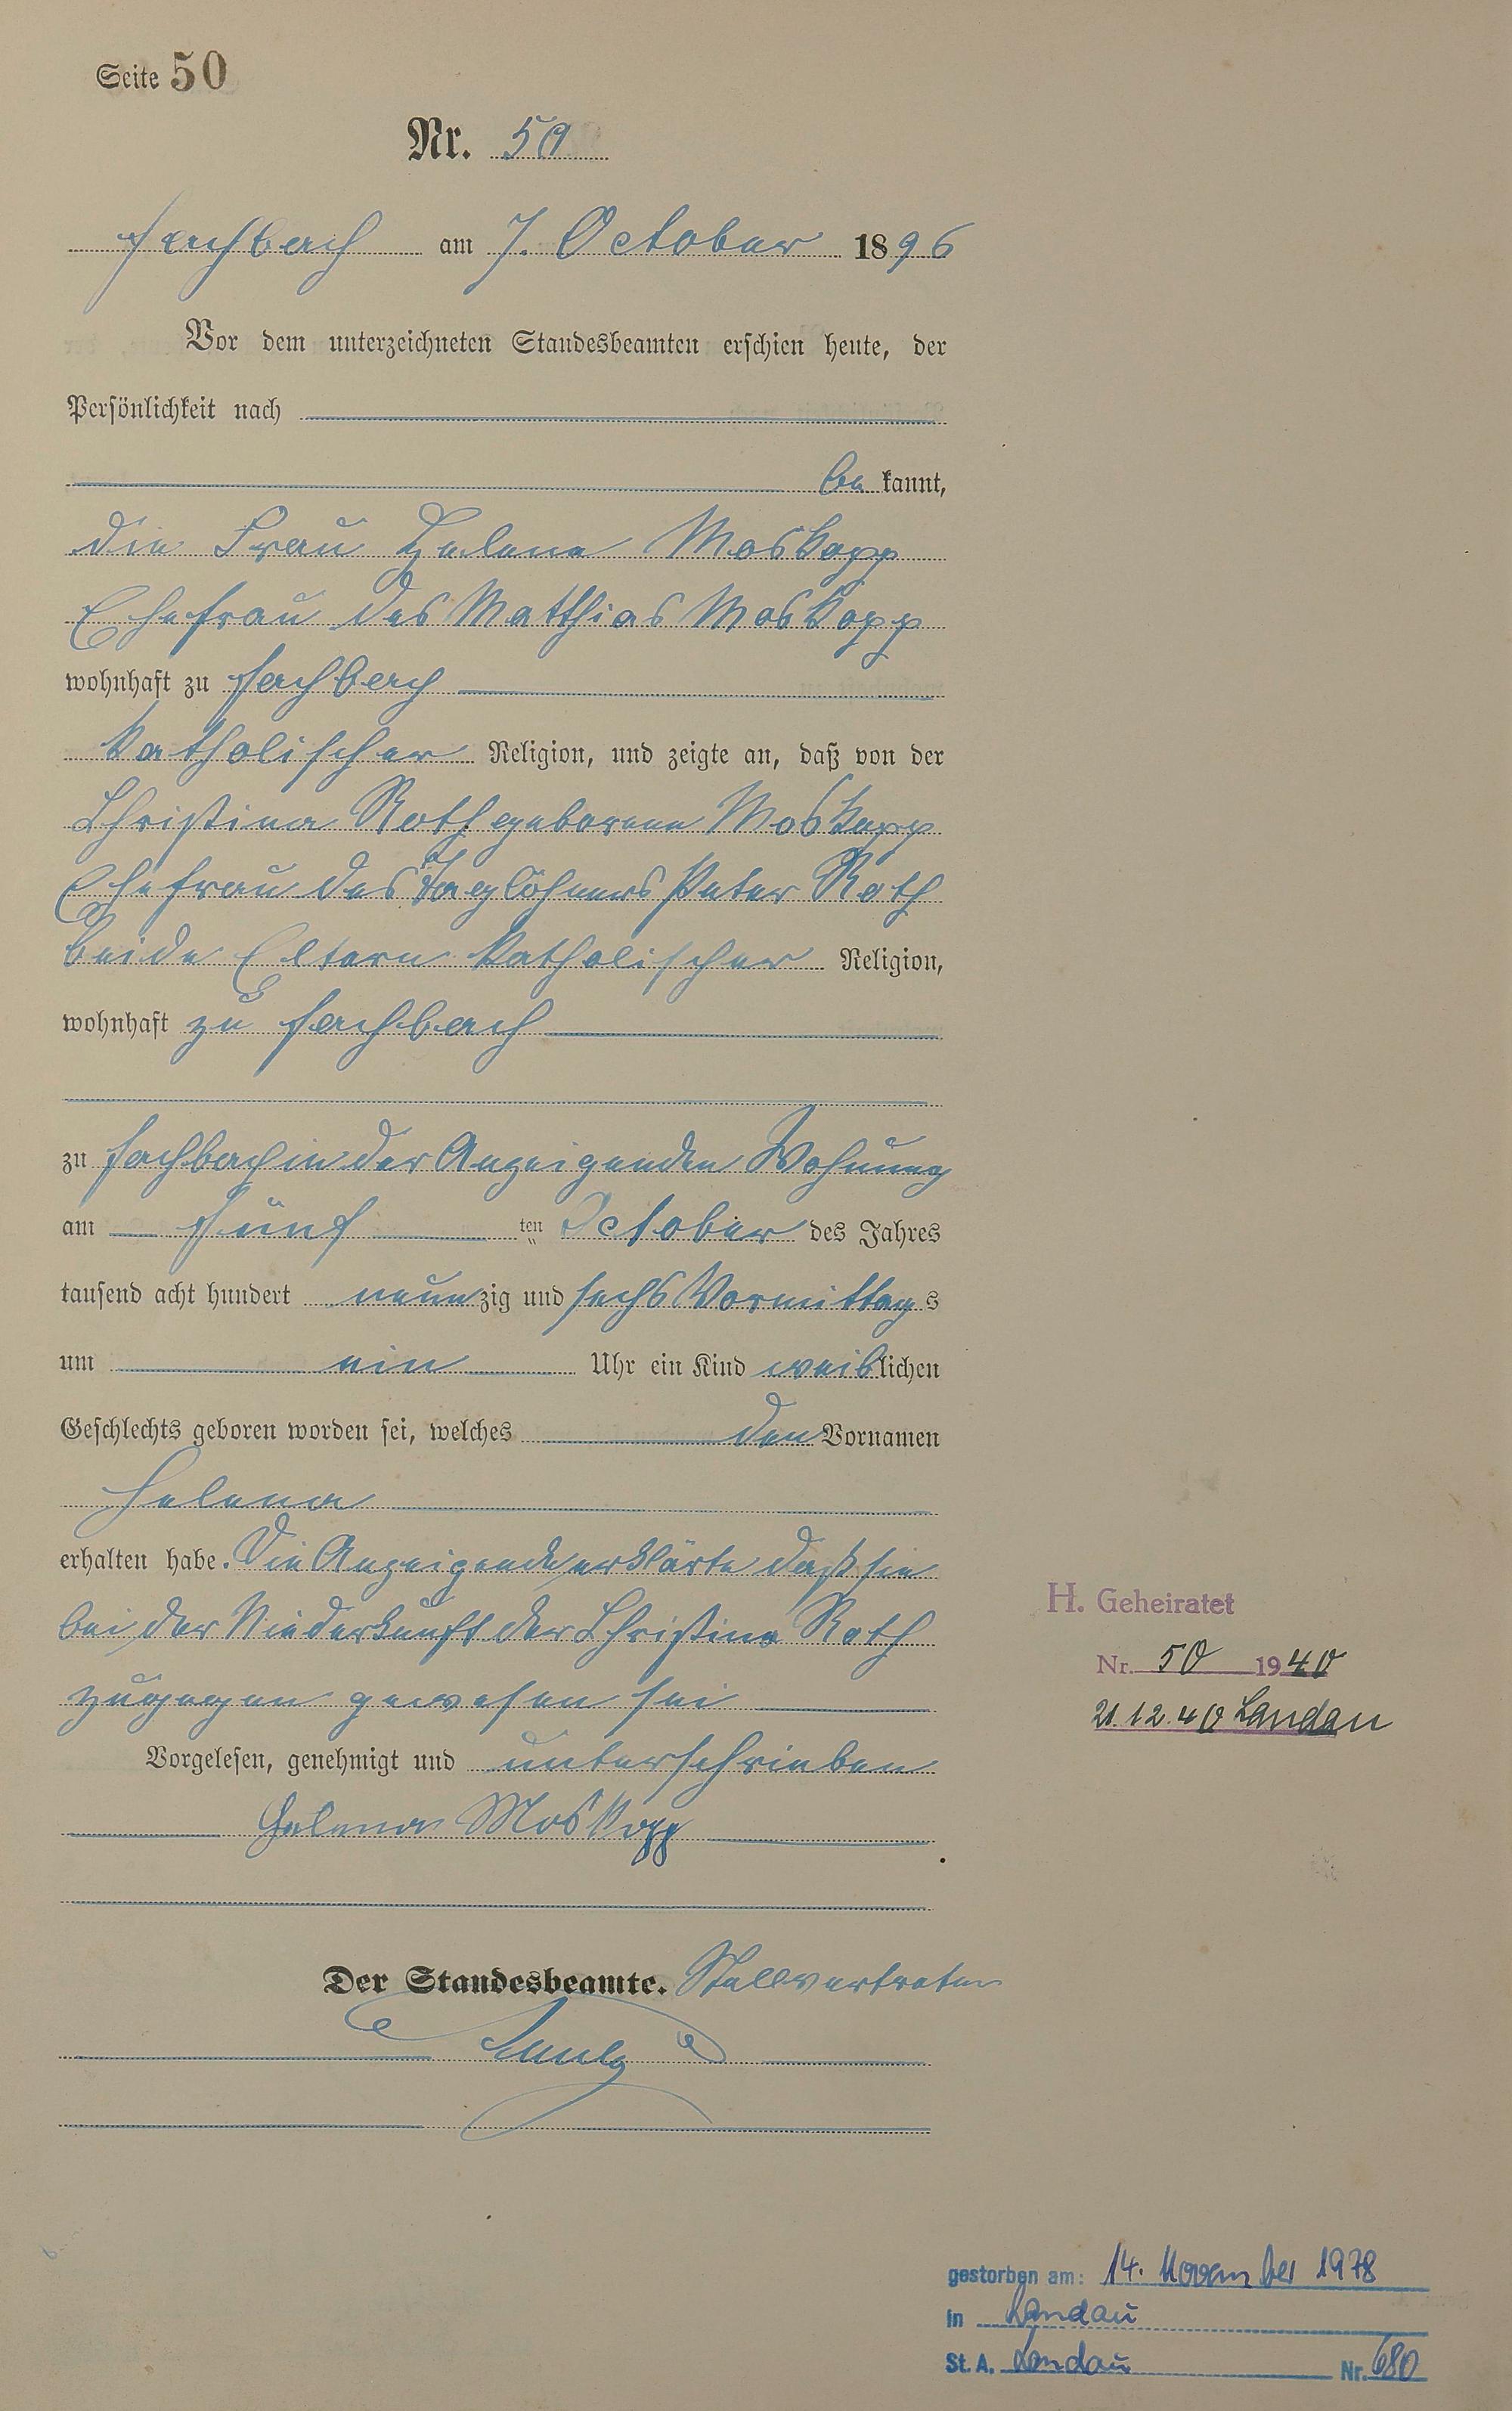 Seite 50
Nr. 50
Fachbach am 7. October 1896
Vor dem unterzeichneten Standesbeamten erschien heute, der
Persönlichkeit nach
be kannt,
die Frau Helena Moskopp
Ehefrau des Matthias Moskopp
wohnhaft zu Fachbach
katholischer Religion, und zeigte an, daß von der
Christina Roth geborene Moskopp
Ehefrau des Taglöhners Peter Roth
beide Eltern katholischer Religion,
wohnhaft zu Fachbach
zu Fachbach in der Anzeigenden Wohnung
am fünf ten October des Jahres
tausend acht hundert neunzig und sechs Vormittags
um ein Uhr ein Kind weiblichen
Geschlechts geboren worden sei, welches den Vornamen
Helena
erhalten habe. Die Anzeigende erklärte daß sie
bei der Niederkunft der Christina Roth
zugegen gewesen sei
Vorgelesen, genehmigt und unterschrieben
Helena Moskopp
Der Standesbeamte. Stellvertreter
H. Geheiratet
Nr. 50 1940
21.12.40 Landau
gestorben am: 14. November 1978
in Landau
St. A. Landau Nr. 680